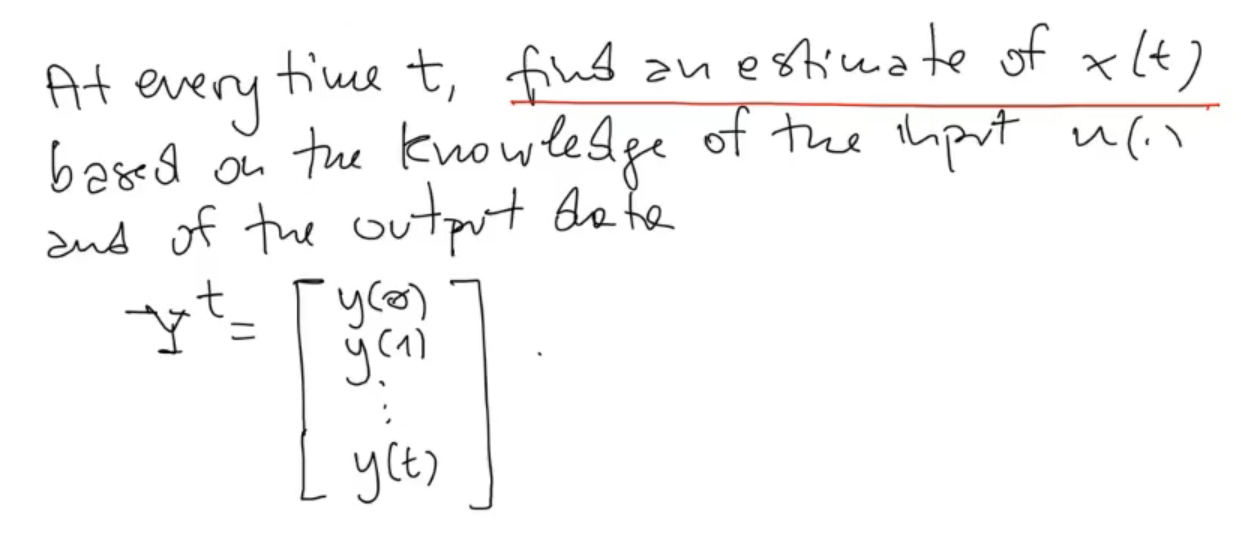 At every time t, find an estimate of x(t)
based on the knowledge of the input u(.)
and of the output data
Y^t = [ y(0)
y(1)
⋮
y(t) ] .